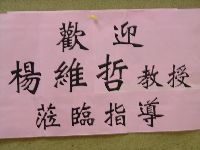 歡迎
楊維哲教授
蒞臨指導